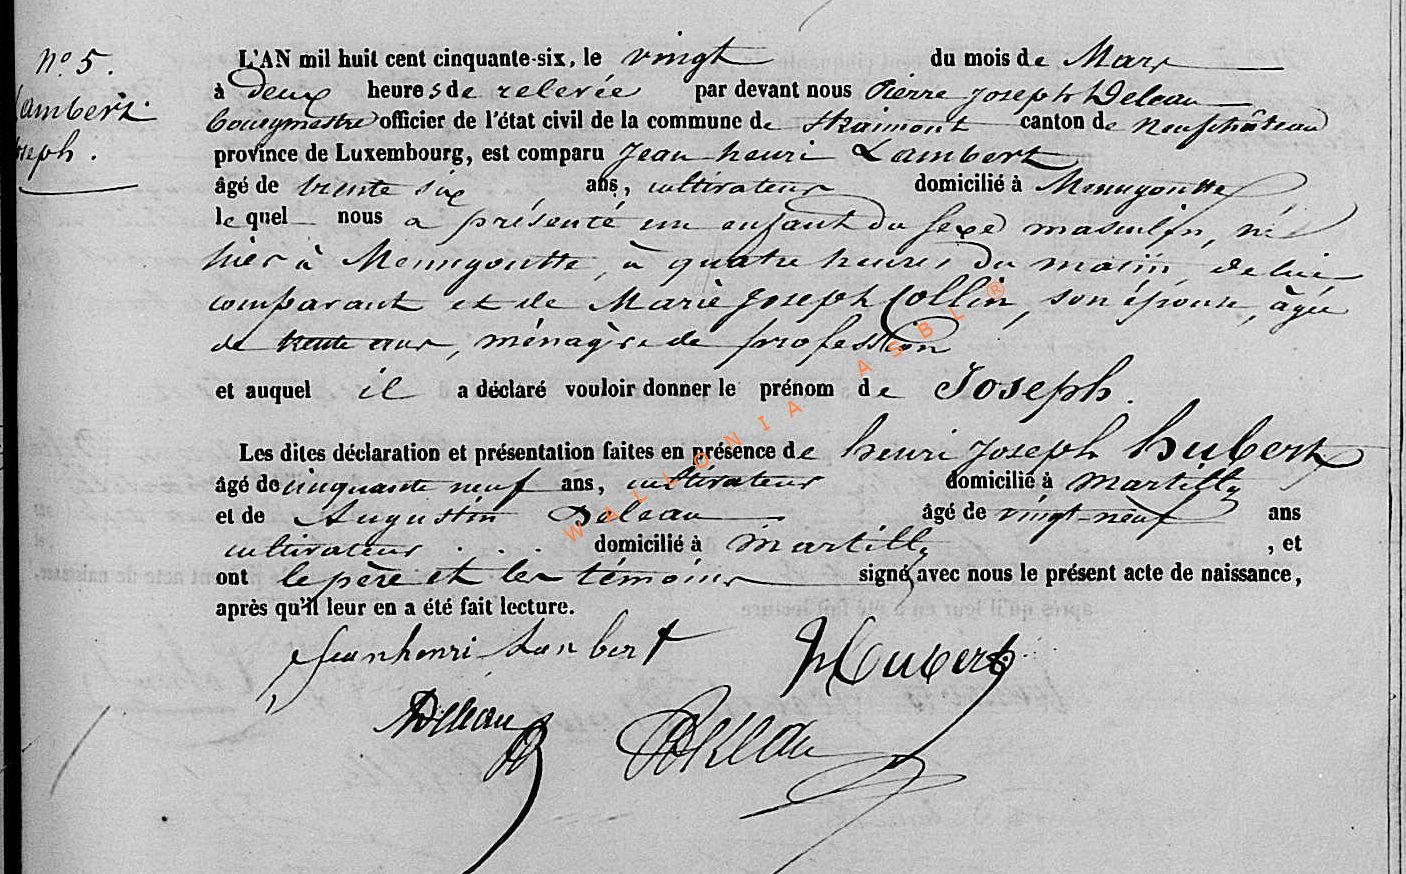 N° 5.
Lambert
Joseph.
L'AN mil huit cent cinquante-six, le vingt du mois de Mars
à deux heures de relevée par devant nous Pierre Joseph Deleau
bourgmestre officier de l'état civil de la commune de Straimont canton de Neufchâteau
province de Luxembourg, est comparu Jean henri Lambert
âgé de trente six ans, cultivateur domicilié à Menugoutte
lequel nous a présenté un enfant du sexe masculin, né
hier à Menugoutte, à quatre heures du matin, de lui
comparant et de Marie Joseph Collin, son épouse, âgée
de trente ans, ménagère de profession
et auquel il a déclaré vouloir donner le prénom de Joseph.
Les dites déclaration et présentation faites en présence de henri Joseph hubert
âgé de cinquante neuf ans, cultivateur domicilié à Martilly
et de Augustin Deleau âgé de vingt-neuf ans
cultivateur . . . domicilié à Martilly , et
ont le père et les témoins signé avec nous le présent acte de naissance,
après qu'il leur en a été fait lecture.
Jean henri Lambert HJHubert
ADeleau PJDeleau
WALLONIA ASBL ®